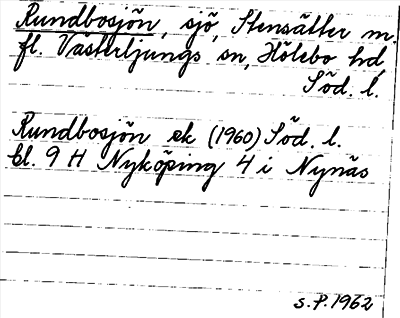 Rundbosjön, sjö, Stensätter m.
fl. Västerljungs sn, Hölebo hd,
Söd. l.
Rundbosjön ek (1960) Söd. l.
bl. 9 H Nyköping 4 i Nynäs
S.P. 1962